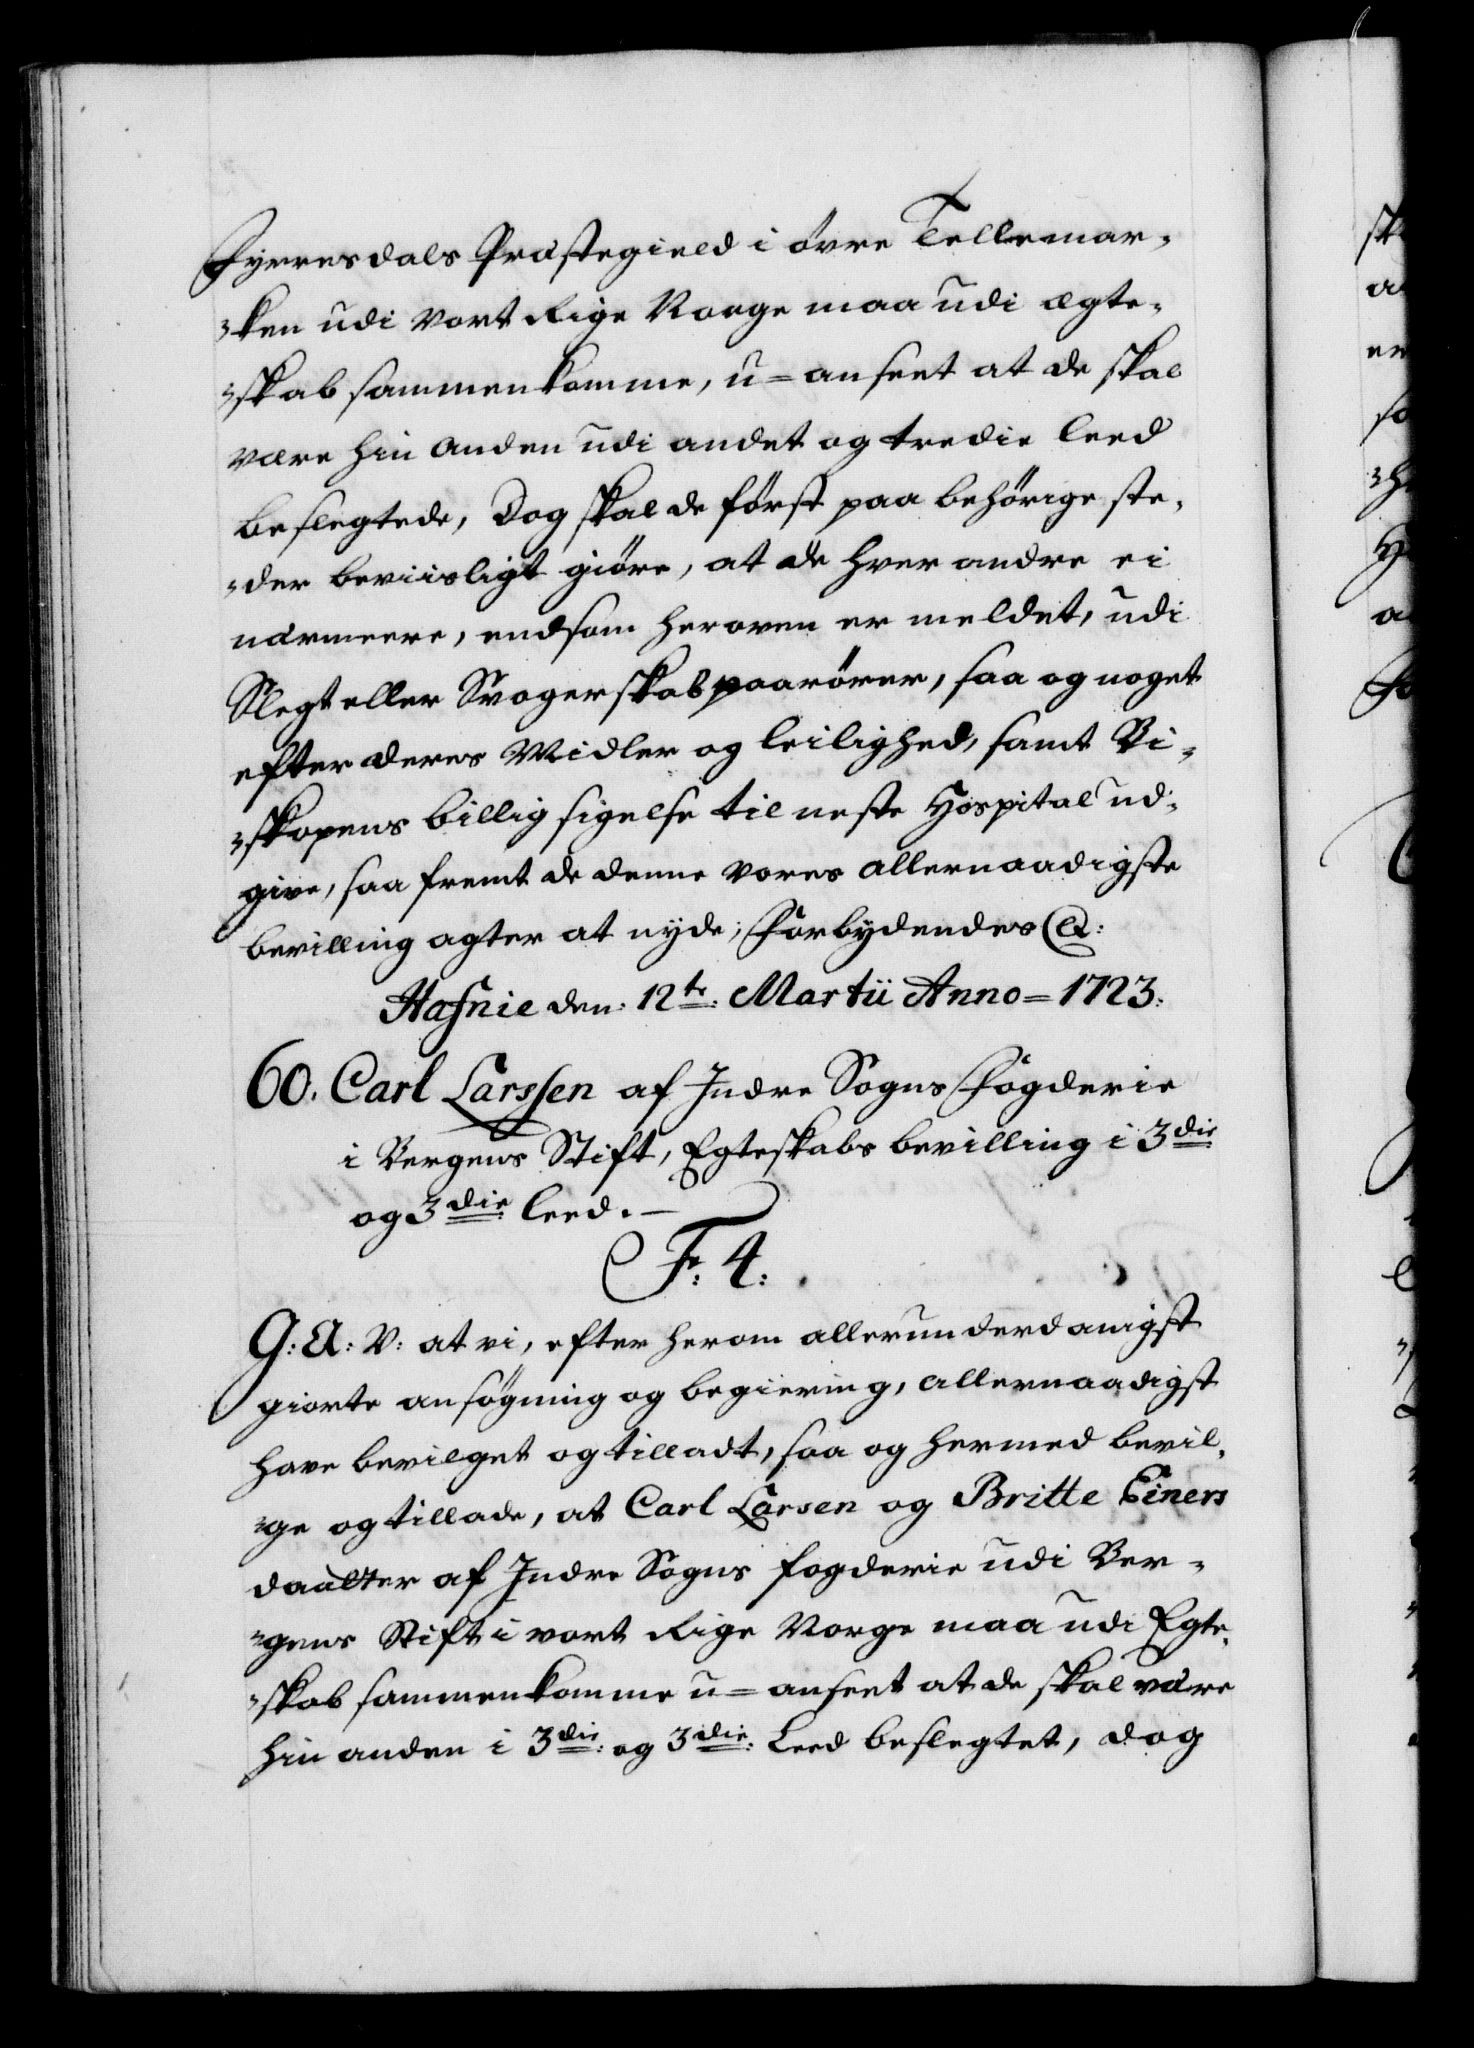 Fyrresdals Præstegield i øvre Tellemar-
-ken udi vort Rige Norge maa udi ægte-
-skab sammenkomme, u=anseet at de skal
være hin anden udi andet og tredie leed
beslegtede, Dog skal de først paa behörige ste-
-der beviisligt giöre, at de hver andre ei
närmeere, end som heroven er meldet, udi
Slegt eller Svogerskab paarörer, saa og noget
efter deres Midler og leilighed, samt Bi-
-skopens billig sigelse til neste Hospital ud-
give, saa fremt de denne vores allernaadigste
bevilling agter at nyde; Forbydendes &:
Hafnie den: 12te: Martii Anno=1723:
60. Carl Larssen af Indre Sogns Fogderie
i Bergens Stift, Egteskabs bevilling i 3die
og 3die leed.-
Fr: 4:
G: A: V: at vi, efter herom allerunderdanigst
giorte ansögning og begiering, allernaadigst
have bevilget og tilladt, saa og hermed bevil-
-ge og tillade, at Carl Larsen og Britte Einers
daatter af Indre Sogns fogderie udi Ber-
-gens Stift i vort Rige Norge maa udi Egte-
-skab sammenkomme u=anseet at de skal være
hin anden i 3die: og 3die: Leed beslegtet, dog